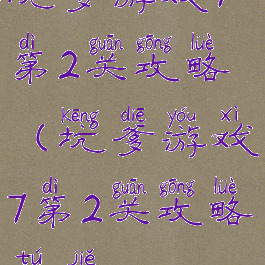 dì guān gōng lüè
第2关攻略
kēng diē yóu xì
(坑爹游戏
dì guān gōng lüè
7第2关攻略
tú jiě